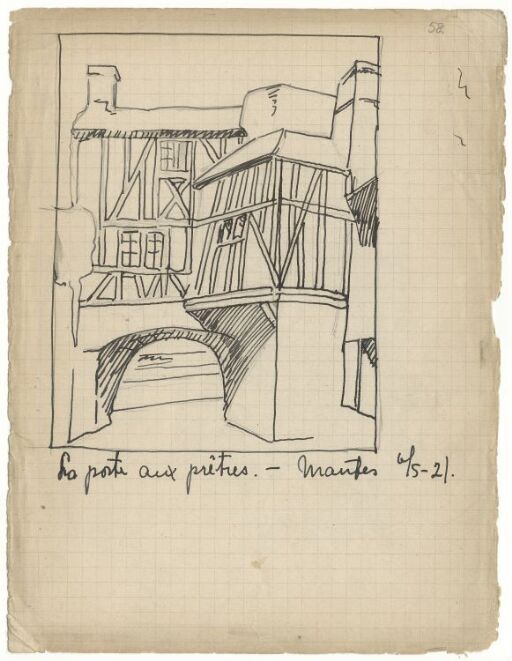 58.
La porte aux prêtres. – Mantes 6/5-21.